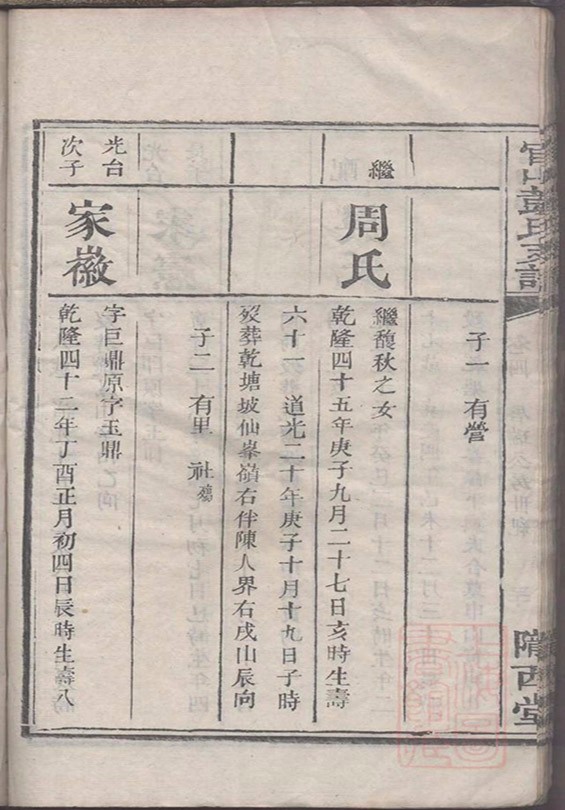 官山彭氏支譜
隴西堂
子一有營
繼
周氏
繼馥秋之女
乾隆四十五年庚子九月二十七日亥時生壽
六十一 道光二十年庚子十月十九日子時
歿葬乾塘坡仙峯嶺右伴陳人界右戌山辰向
子二 有里 社殤
光台
次子
家徽
字巨鼎原字玉鼎
乾隆四十二年丁酉正月初四日辰時生壽八